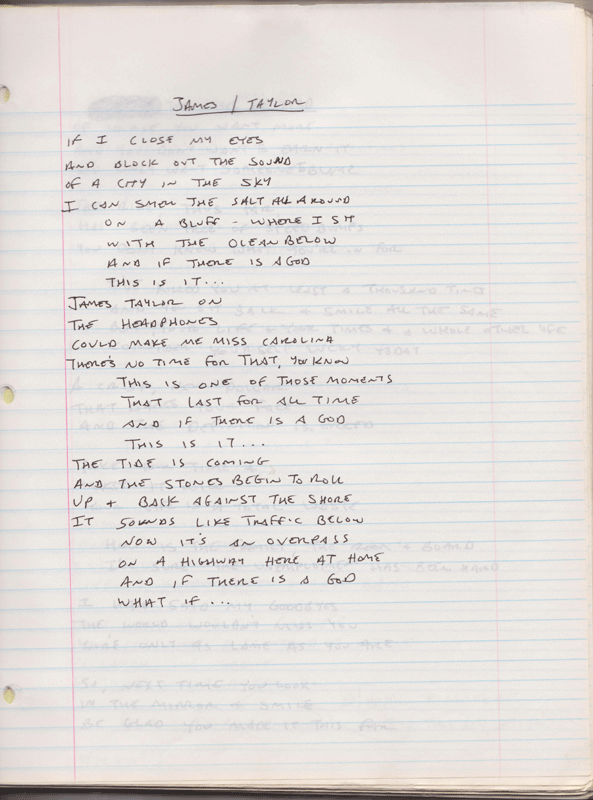 JAMES / TAYLOR
IF I CLOSE MY EYES
AND BLOCK OUT THE SOUND
OF A CITY IN THE SKY
I CAN SMELL THE SALT ALL AROUND
ON A BLUFF - WHERE I SIT
WITH THE OCEAN BELOW
AND IF THERE IS A GOD
THIS IS IT...
JAMES TAYLOR ON
THE HEADPHONES
COULD MAKE ME MISS CAROLINA
THERE'S NO TIME FOR THAT, YOU KNOW
THIS IS ONE OF THOSE MOMENTS
THAT LAST FOR ALL TIME
AND IF THERE IS A GOD
THIS IS IT...
THE TIDE IS COMING
AND THE STONES BEGIN TO ROLL
UP + BACK AGAINST THE SHORE
IT SOUNDS LIKE TRAFFIC BELOW
NOW IT'S AN OVERPASS
ON A HIGHWAY HERE AT HOME
AND IF THERE IS A GOD
WHAT IF...
SO, NEXT TIME YOU LOOK
IN THE MIRROR + SMILE
BE GLAD YOU MADE IT THIS FAR